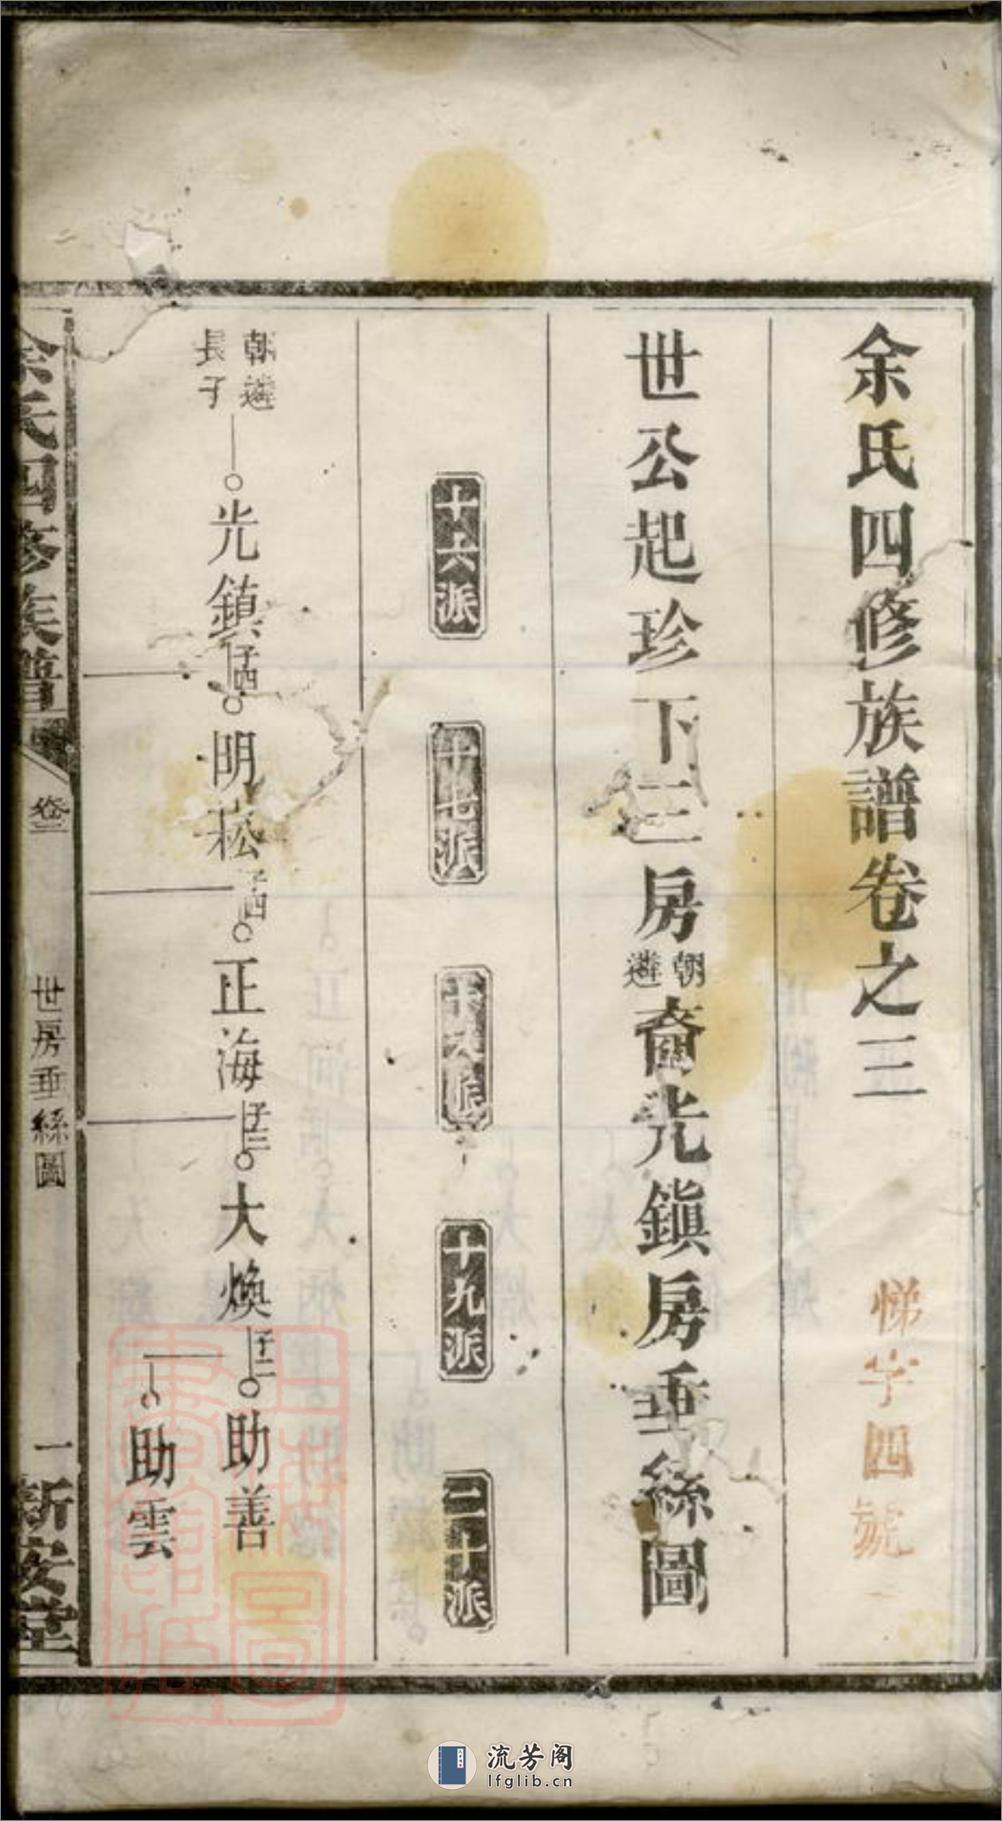 余氏四修族譜卷之三
悌字四號
世公起珍下三房朝遴裔光鎮房垂絲圖
十六派
十七派
十八派
十九派
二十派
朝遴長子
光鎮子四
明崧子四
正海子二
大煥子二
助善
助雲
余氏四修族譜
卷三
世房垂絲圖
一
新安堂
流芳阁
lfglib.cn